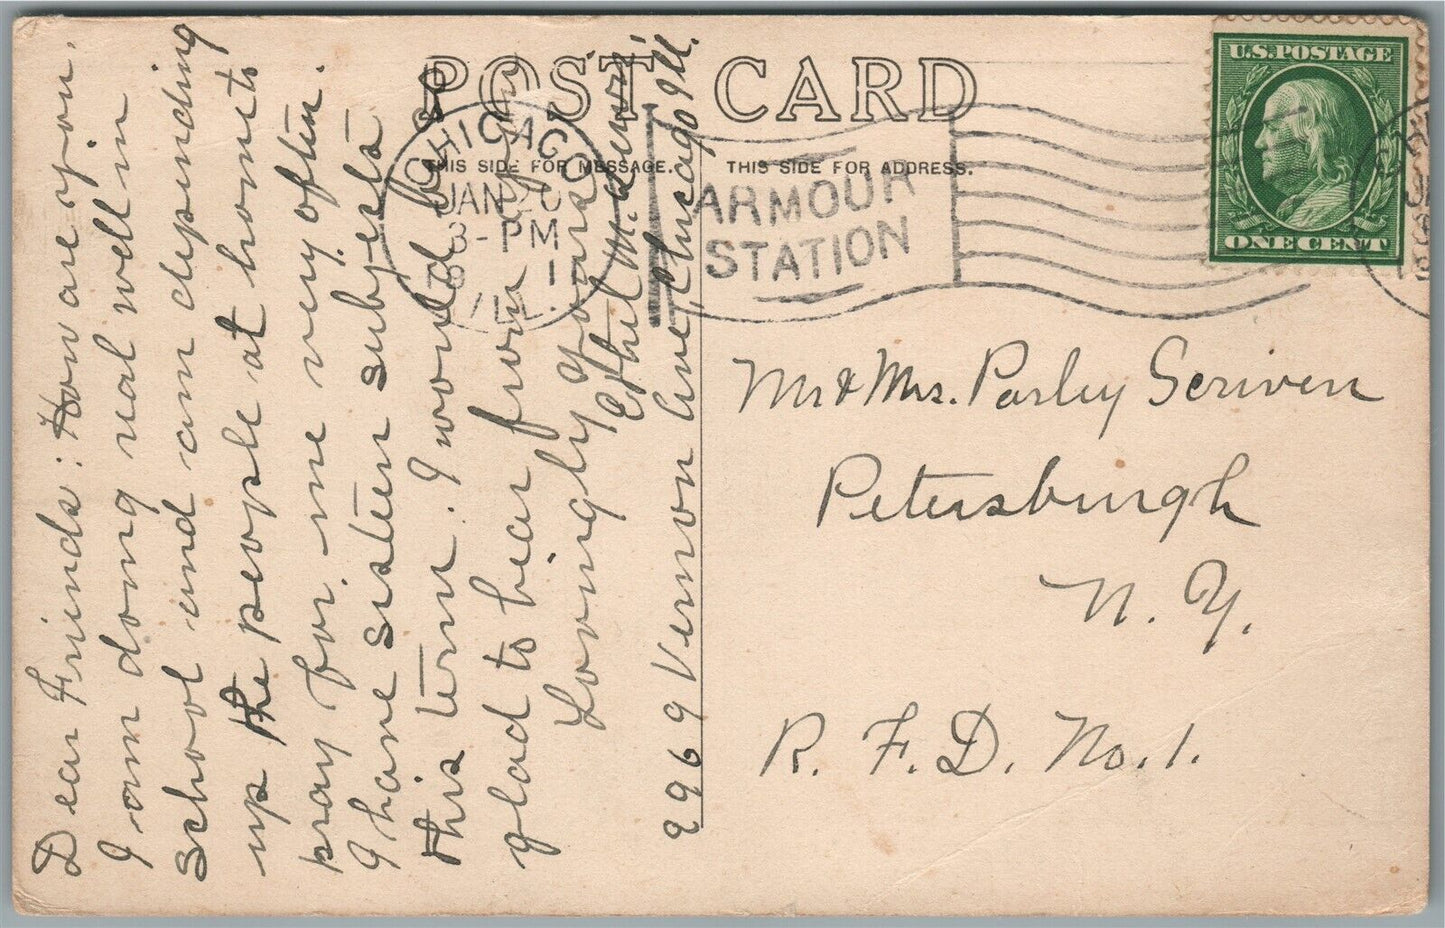 POST CARD
THIS SIDE FOR MESSAGE.
THIS SIDE FOR ADDRESS.
U.S. POSTAGE
ONE CENT
CHICAGO
JAN 20
3-PM
ILL.
ARMOUR
STATION
Dear Friends: How are you.
I am doing real well in
school and am depending
up the people at home to
pray for me very often.
I have sixteen subjects
this term. I would be
glad to hear from any
Lovingly yours
Ethel M.
2969 Vernon Ave, Chicago Ill.
Mr & Mrs. Parley Scriven
Petersburgh
N. Y.
R. F. D. No. 1.